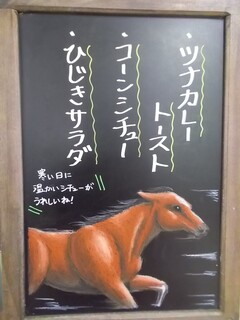 ・ツナカレー
トースト
・コーンシチュー
・ひじきサラダ
寒い日に
温かいシチューが
うれしいね!